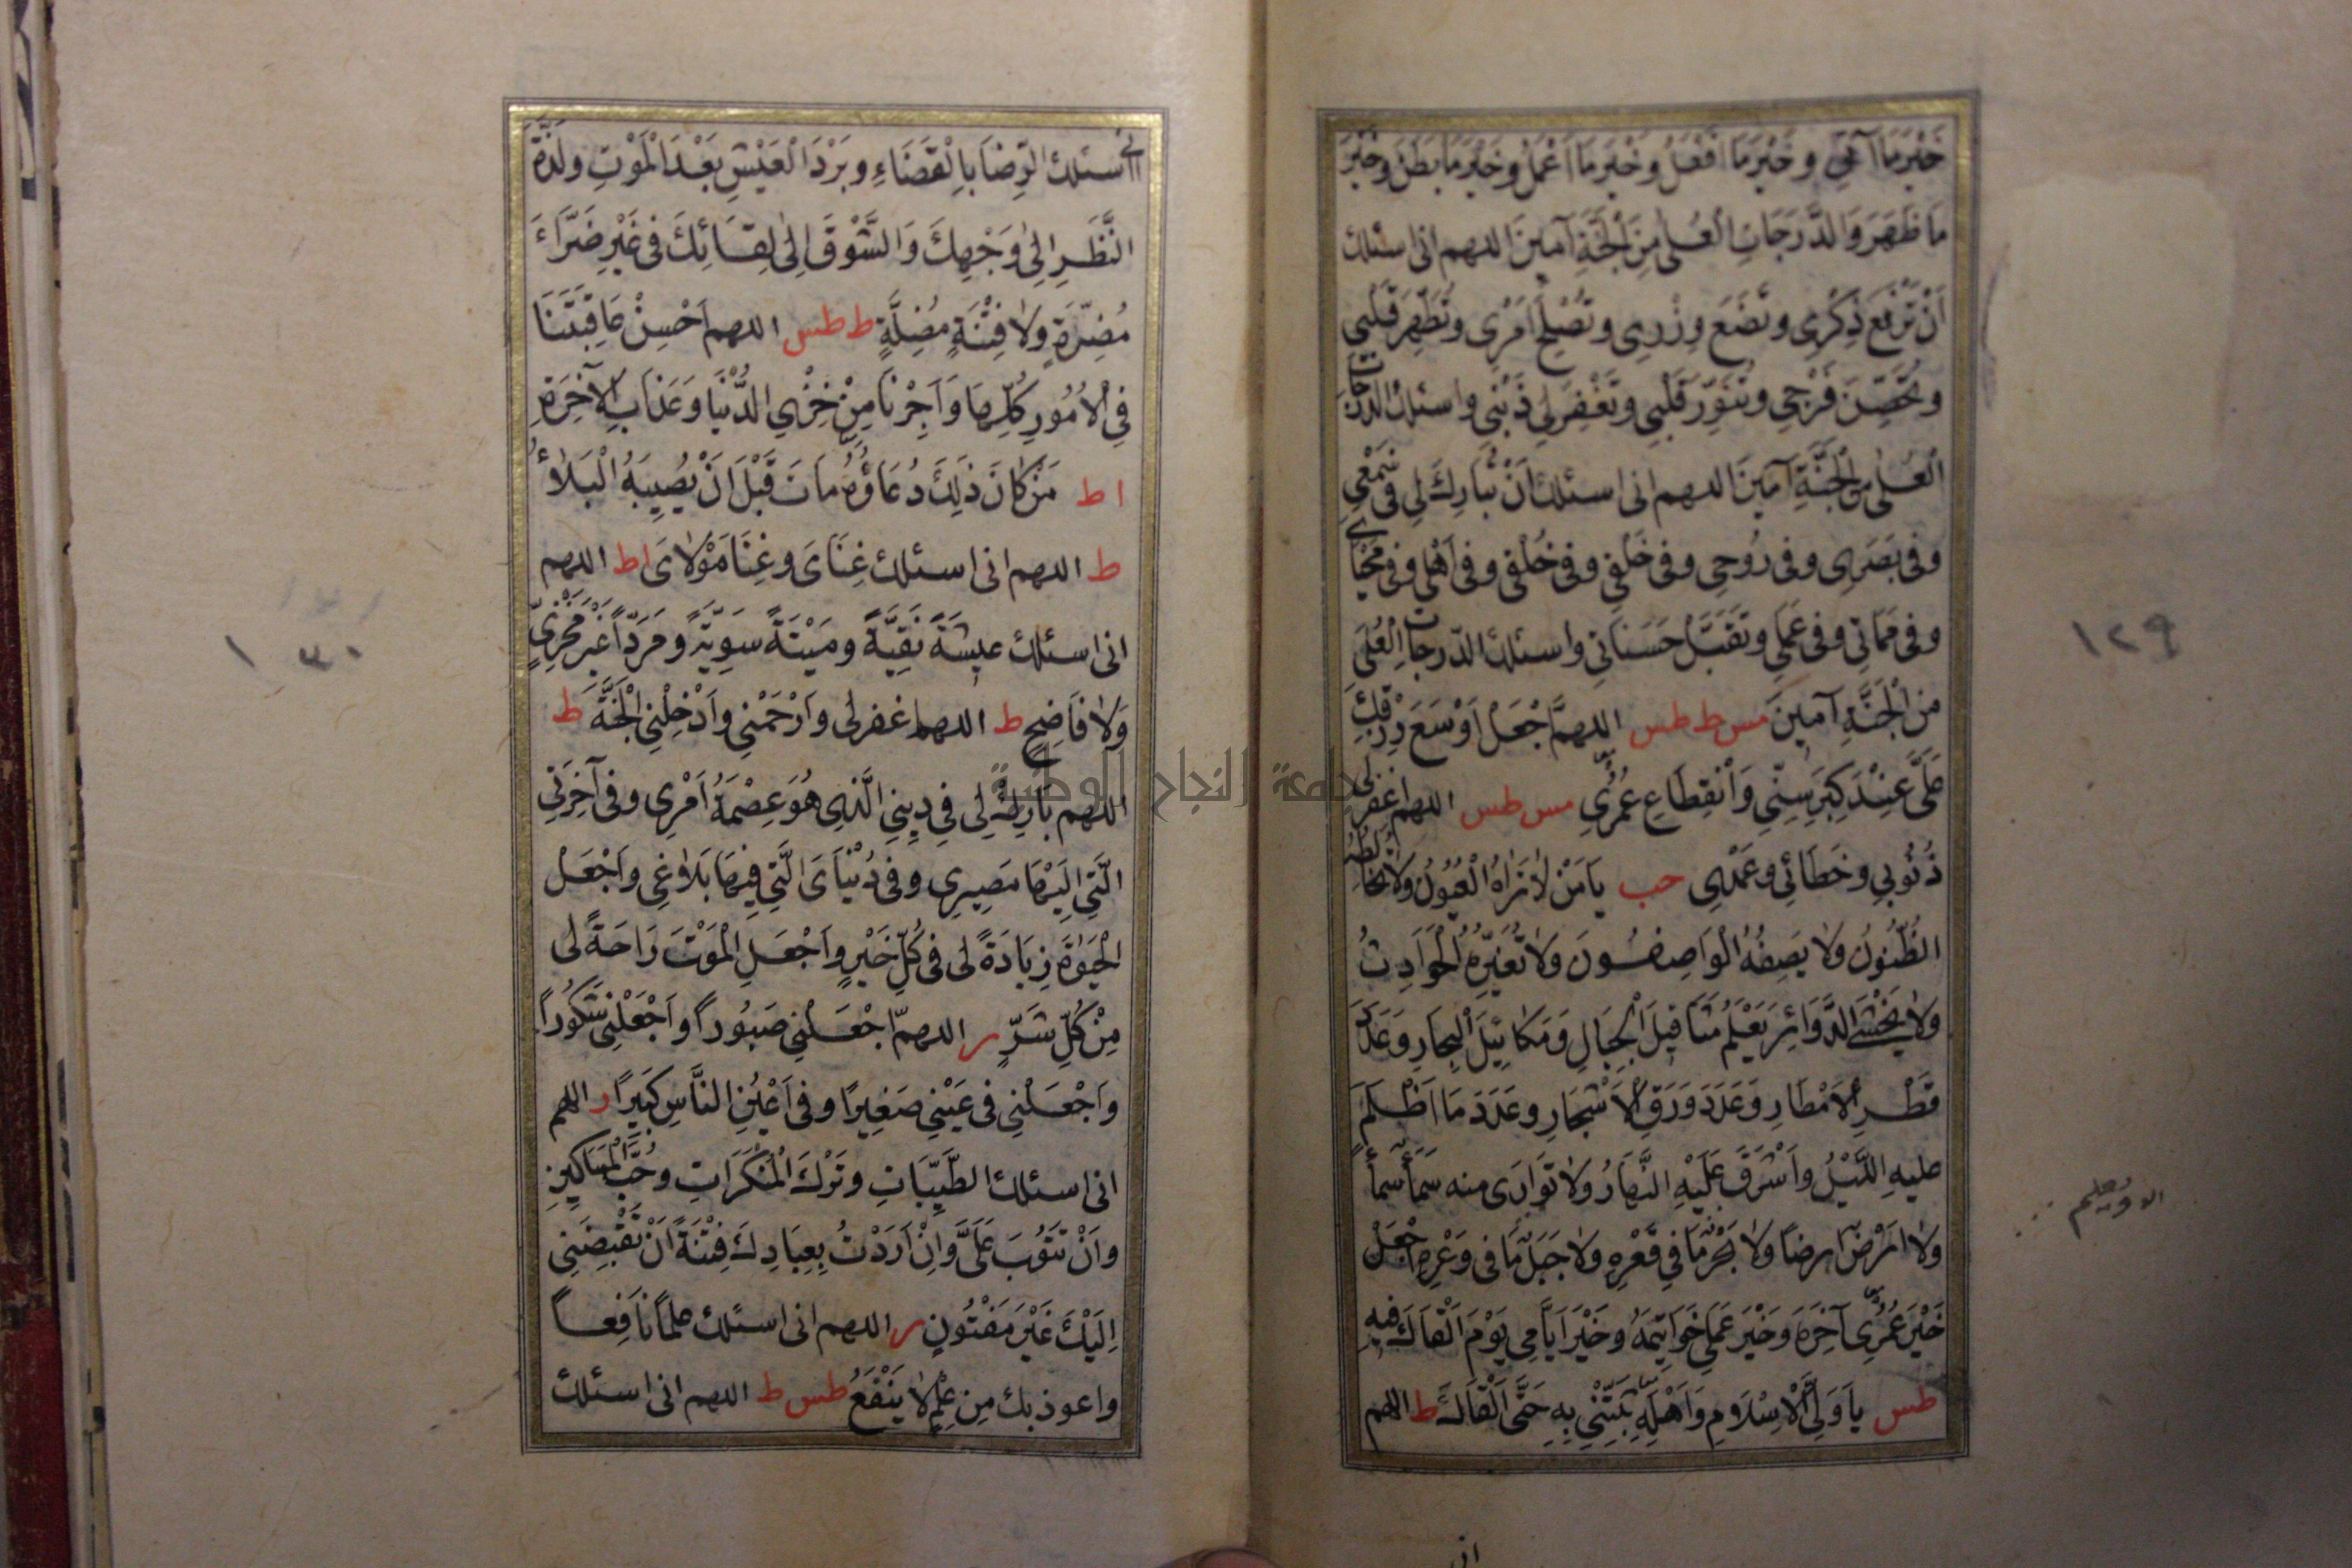 خَيْرَ مَا آتِي وخَيْرَ مَا اَفْعَلُ وخَيْرَ مَا اَعْمَلُ وخَيْرَ مَا بَطَنَ وخَيْرَ
مَا ظَهَرَ وَالدَّرَجَاتِ الْعُلٰى مِنَ الْجَنَّةِ آمِينَ اللهم انى اسئلك
اَنْ تَرْفَعَ ذِكْرِى وتَضَعَ وِزْرِى وتُصْلِحَ اَمْرِى وتُطَهِّرَ قَلْبِى
وتُحَصِّنَ فَرْجِى وتُنَوِّرَ قَلْبِى وتَغْفِرَ لِى ذَنْبِى واسئلك الدرجات
الْعُلٰى مِنَ الْجَنَّةِ آمِينَ اللهم انى اسئلك اَنْ تُبَارِكَ لِى فِى سَمْعِى
وفى بَصَرِى وفى رُوحِى وفى خَلْقِى وفى خُلُقِى وفى اَهْلِى وفى مَحْيَاىَ
وفى مَمَاتِى وفى عَمَلِى وتَقَبَّلْ حَسَنَاتِى واسئلك الدّرجاتِ الْعُلَى
مِنَ الْجَنَّةِ آمِينَ مس ط طس اللهمَّ اجْعَلْ اَوْسَعَ رِزْقِكَ
عَلَىَّ عِنْدَ كِبَرِ سِنِّى وَانْقِطَاعِ عُمُرِى مس طس اللهم اغفرلى
ذُنُوبِى وخَطَائِى وعَمْدِى حب يَا مَنْ لَا تَرَاهُ الْعُيُونُ ولَا تُخَالِطُهُ
الظُّنُونُ ولَا يَصِفُهُ الْوَاصِفُونَ ولَا تُغَيِّرُهُ الْحَوَادِثُ
ولَا يَخْشَى الدَّوَائِرَ يَعْلَمُ مَثَاقِيلَ الْجِبَالِ وَمَكَايِيلَ الْبِحَارِ وَعَدَدَ
قَطْرِ الْاَمْطَارِ وَعَدَدَ وَرَقِ الْاَشْجَارِ وعَدَدَ مَا اَظْلَمَ
عليهِ اللَّيْلُ واَشْرَقَ عَلَيْهِ النَّهَارُ ولَا تَوَارَى منه سَمَاءٌ سَمَاءً
ولَا اَرْضٌ ارضًا ولَا بَحْرٌ مَا فِى قَعْرِهِ ولَا جَبَلٌ مَا فِى وَعْرِهِ اجْعَلْ
خَيْرَ عُمُرِى آخِرَهُ وَخَيْرَ عَمَلِى خَوَاتِيمَهُ وخَيْرَ اَيَّامِى يَوْمَ اَلْقَاكَ فيهِ
طس يَا وَلِىَّ الْاِسْلَامِ وَاَهْلِهِ ثَبِّتْنِى بِهِ حَتَّى اَلْقَاكَ ط اللهم
١٢٩
انى
انى اسئلك الرِّضَا بِالْقَضَاءِ وبَرْدَ الْعَيْشِ بَعْدَ الْمَوْتِ ولَذَّةَ
النَّظَرِ اِلٰى وَجْهِكَ وَالشَّوْقَ اِلٰى لِقَائِكَ فى غَيْرِ ضَرَّاءَ
مُضِرَّةٍ ولَا فِتْنَةٍ مُضِلَّةٍ ط طس اللهم اَحْسِنْ عَاقِبَتَنَا
فِى الْاُمُورِ كُلِّهَا وَاَجِرْنَا مِنْ خِزْىِ الدُّنْيَا وَعَذَابِ الْآخِرَةِ
ا ط مَنْ كَانَ ذَلِكَ دُعَاؤُهُ مَاتَ قَبْلَ اَنْ يُصِيبَهُ الْبَلَاءُ
ط اللهم انى اسئلك غِنَاىَ وغِنَا مَوْلَاىَ ا ط اللهم
انى اسئلك عيشَةً نَقِيَّةً ومَيْتَةً سَوِيَّةً ومَرَدًّا غَيْرَ مُخْزِىٍّ
وَلَا فَاضِحٍ ط اللهم اغفرلى وارْحَمْنِى واَدْخِلْنِى الْجَنَّةَ ط
اللهم بَارِكْ لِى فِى دِينِى الَّذِى هُوَ عِصْمَةُ اَمْرِى وفى آخِرَتِى
الَّتِى اِلَيْهَا مَصِيرِى وفى دُنْيَاىَ الَّتِى فِيهَا بَلَاغِى واجْعَلْ
الْحَيٰوةَ زِيَادَةً لى فى كُلِّ خَيْرٍ واجْعَلِ الْمَوْتَ رَاحَةً لى
مِنْ كُلِّ شَرٍّ ر اللهمّ اجْعَلْنِى صَبُورًا واجْعَلْنِى شَكُورًا
واجْعَلْنِى فى عَيْنِى صَغِيرًا وفى اَعْيُنِ النَّاسِ كَبِيرًا ر اللهم
انى اسئلك الطَّيِّبَاتِ وتَرْكَ الْمُنْكَرَاتِ وحُبَّ الْمَسَاكِينِ
واَنْ تَتُوبَ عَلَىَّ وَاِنْ اَرَدْتَ بِعِبَادِكَ فِتْنَةً اَنْ تَقْبِضَنِى
اِلَيْكَ غَيْرَ مَفْتُونٍ ر اللهم انى اسئلك علمًا نَافِعًا
واعوذ بك مِن عِلْمٍ لَا يَنْفَعُ طس ط اللهم انى اسئلك
١٣٠
جامعة النجاح الوطنية